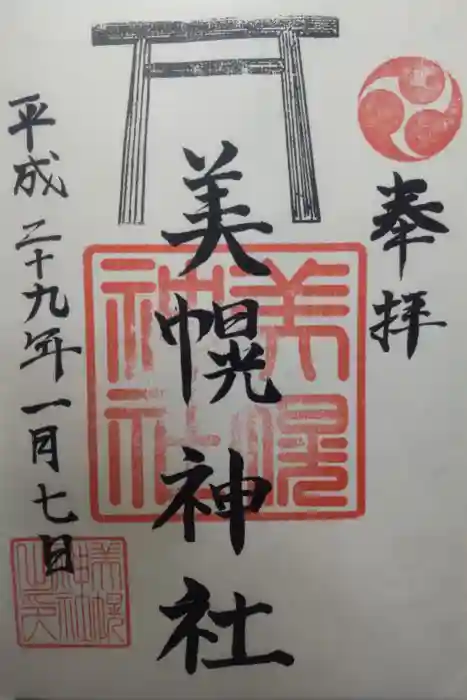 奉拝
美幌神社
美幌神社
平成二十九年一月七日
美幌神社之印